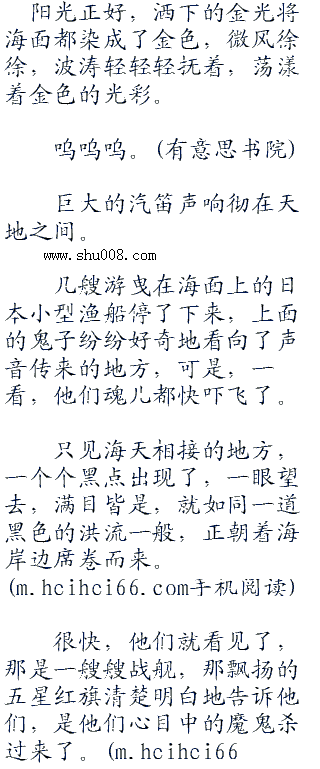 阳光正好，洒下的金光将
海面都染成了金色，微风徐
徐，波涛轻轻轻抚着，荡漾
着金色的光彩。
呜呜呜。(有意思书院)
巨大的汽笛声响彻在天
地之间。
www.shu008.com
几艘游曳在海面上的日
本小型渔船停了下来，上面
的鬼子纷纷好奇地看向了声
音传来的地方，可是，一
看，他们魂儿都快吓飞了。
只见海天相接的地方，
一个个黑点出现了，一眼望
去，满目皆是，就如同一道
黑色的洪流一般，正朝着海
岸边席卷而来。
(m.hcihci66.com手机阅读)
很快，他们就看见了，
那是一艘艘战舰，那飘扬的
五星红旗清楚明白地告诉他
们，是他们心目中的魔鬼杀
过来了。(m.hcihci66